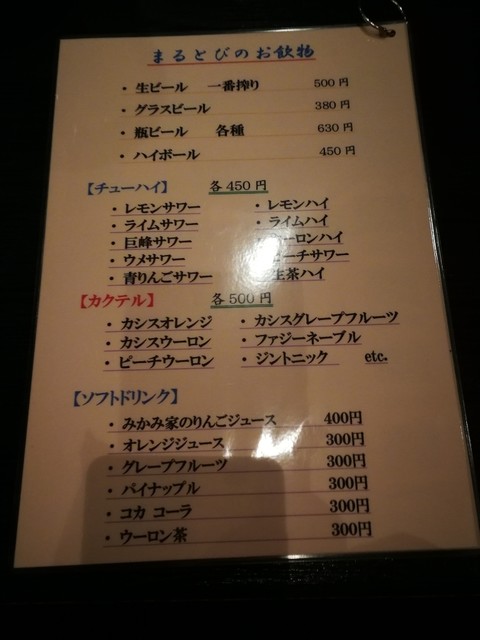 まるとびのお飲物
・生ビール 一番搾り 500円
・グラスビール 380円
・瓶ビール 各種 630円
・ハイボール 450円
【チューハイ】 各450円
・レモンサワー ・レモンハイ
・ライムサワー ・ライムハイ
・巨峰サワー ーロンハイ
・ウメサワー ーチサワー
・青りんごサワー 生茶ハイ
【カクテル】 各500円
・カシスオレンジ ・カシスグレープフルーツ
・カシスウーロン ・ファジーネーブル
・ピーチウーロン ・ジントニック etc.
【ソフトドリンク】
・みかみ家のりんごジュース 400円
・オレンジジュース 300円
・グレープフルーツ 300円
・パイナップル 300円
・コカ コーラ 300円
・ウーロン茶 300円